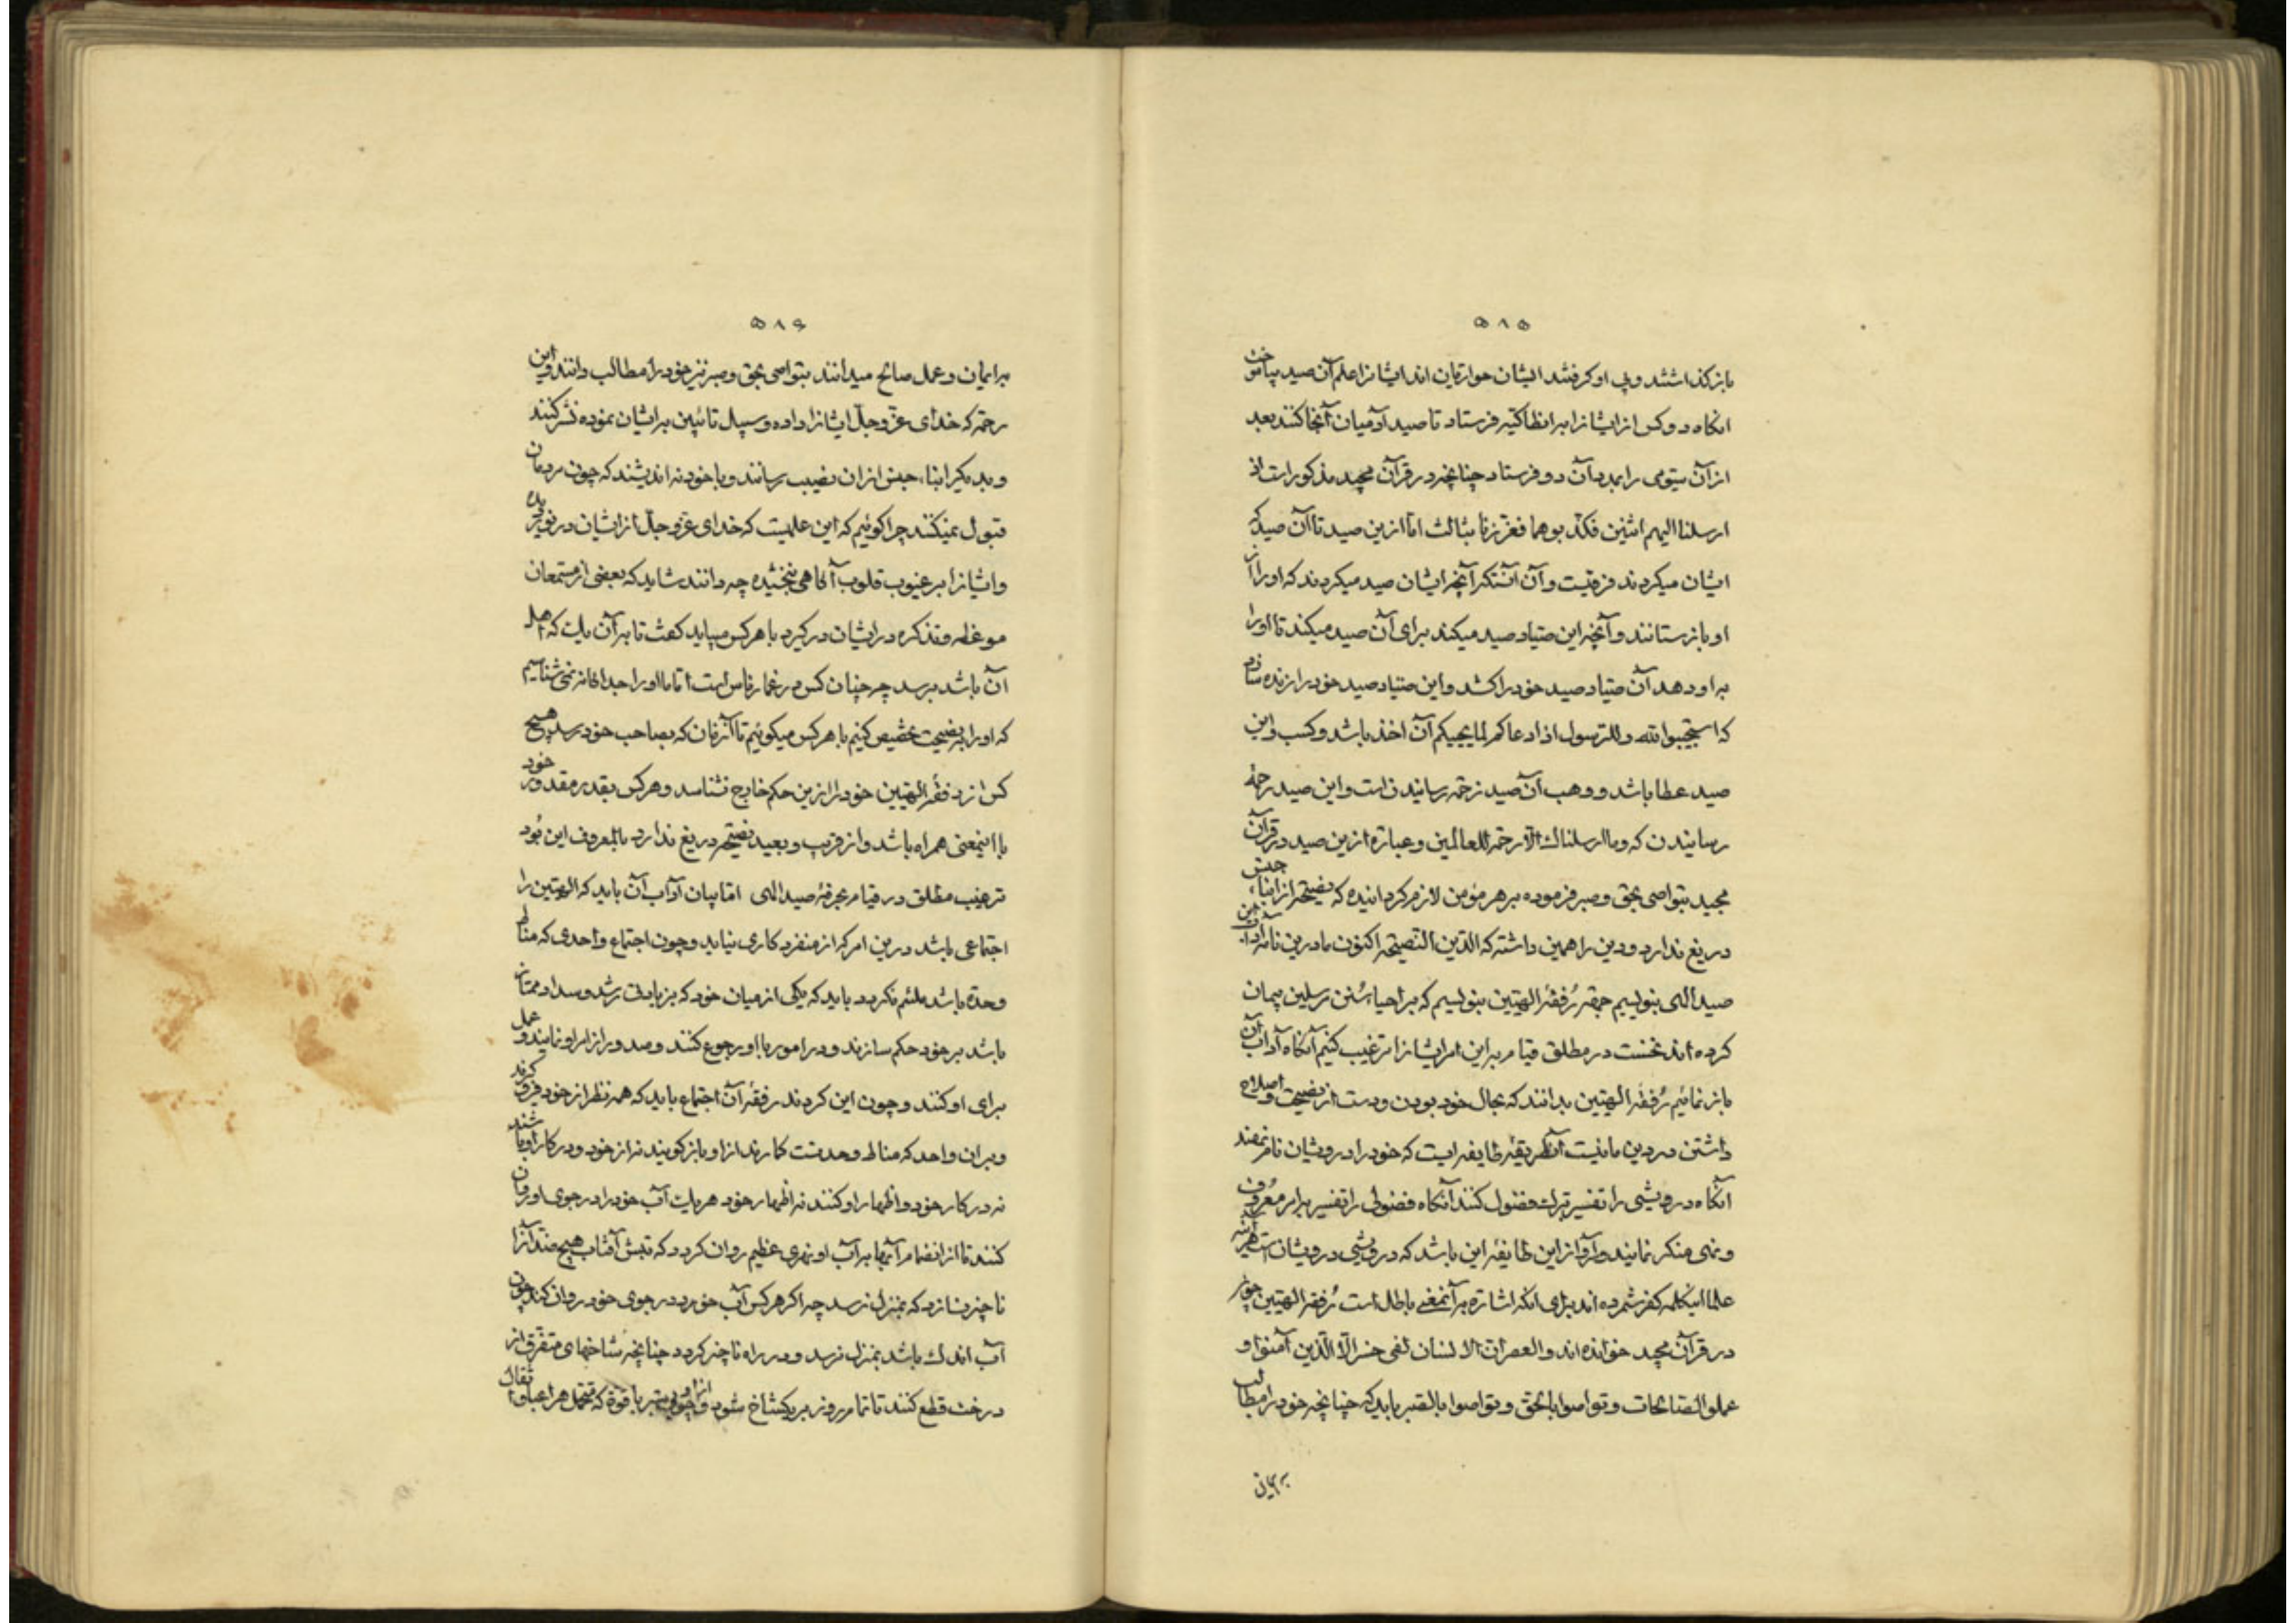 ۵۸۵
باز گذاشتند و پی او گرفتند ایشان حواریان اند ایشانرا علم آن صید بیاموخت
انگاه دو کس از ایشانرا بر انطاکیه فرستاد تا صید آدمیان آنجا کنند بعد
از آن سیومی را بمدد آن دو فرستاد چنانچه در قرآن مجید مذکور است اذ
ارسلنا الیهم اثنین فکذبوهما فعززنا بثالث اما ازین صید تا آن صید که
ایشان میکردند فرقیست و آن آنستکه آنچه ایشان صید میکردند که او را از
او باز ستانند و آنچه این صیاد صید میکند برای آن صید میکند تا او را
به او دهد آن صیاد صید خود را کشد و این صیاد صید خود را زنده سازد
که استجیبوا لله وللرسول اذا دعاکم لما یحییکم آن اخذ باشد و کسب و این
صید عطا باشد و وهب آن صید زحمة رسانیدن است و این صید رحمة
رسانیدن که وما ارسلناك الا رحمة للعالمین و عبارة ازین صید در قرآن
مجید بتواصی بحق و صبر فرموده بر هر مؤمن لازم کردانیده که نصیحة از ابناء جنس
دریغ ندارد و دین را همین داشته که الدین النصیحة اکنون ما درین نامه آداب این
صید الهی بنویسیم جهة رُفقهٔ الهیین بنویسیم که بر احیاء سُنن مرسلین پیمان
کرده اند نخست در مطلق قیام بر این امر ایشانرا ترغیب کنیم آنگاه آداب آن
باز نمائیم رُفقهٔ الهیین بدانند که بحال خود بودن و دست از نصیحت و اصلاح
داشتن در دین ما نیست آن طریقهٔ طایفه ایست که خود را درویشان نام نهند
آنگاه درویشی را تفسیر بترك فضول کنند آنگاه فضولی را تفسیر بامر معروف
و نهی منکر نمایند و آواز این طایفه این باشد که درویشی درویشان است هر آینه
علما اینکلمه کفر شمرده اند برای انکه اشارة بر آنمعنی باطل است رُفقهٔ الهیین چون
در قرآن مجید خوانده اند والعصر ان الانسان لفی خسر الا الذین آمنوا و
عملوا الصالحات و تواصوا بالحق و تواصوا بالصبر باید که چنانچه خود را مطالب
بر ایمان
۵۸۶
بر ایمان و عمل صالح میدانند بتواصی بحق و صبر نیز خود را مطالب دانند و این
رحمة که خدای عزّ و جلّ ایشانرا داده و سبیل تائبین بر ایشان نموده نشر کنند
و بدیگر ابناء جنس از ان نصیب رسانند و با خود نه اندیشند که چون مردمان
قبول نمیکنند چرا گوئیم که این علمیست که خدای عزّ و جلّ از ایشان در نوردیده
و ایشانرا بر غیوب قلوب آگاهی نبخشیده چه دانند شاید که بعضی از مستمعان
موعظه و تذکره در ایشان در گیرد با هر کس میباید گفت تا بر آن یك که اهل
آن باشد برسد چه چنان کس در غمار ناس است اما ما او را جداگانه نمی شناسیم
که او را به نصیحت تخصیص کنیم با هر کس میگوئیم تا آنزمان که بصاحب خود رسد هیچ
کس از رفقهٔ الهیین خود را ازین حکم خارج نشناسد و هر کس بقدر مقدور خود
با اینمعنی همراه باشد و از قریب و بعید نصیحة دریغ ندارد بالمعروف این بُود
ترغیب مطلق در قیام بحرفهٔ صید الهی اما بیان آداب آن باید که الهیین را
اجتماعی باشد درین امر که از منفرد کاری نیاید و چون اجتماع واحدی که مناط
وحدة باشد ملتئم نگردد باید که یکی از میان خود که بزیادت رشد و سداد ممتاز
باشد بر خود حکم سازند و در امور با او رجوع کنند و صدور از امر او نمایند و عمل
برای او کنند و چون این کردند رفقهٔ آن اجتماع باید که همه نظر از خود فرو گیرند
و بر ان واحد که مناط وحدتست گمارند از او باز گویند نه از خود و در کار او باشند
نه در کار خود و اظهار او کنند نه اظهار خود هر یك آب خود را در جوی او روان
کنند تا از انضمام آبها بر آب او نهری عظیم روان گردد که تبش آفتاب هیچ آنرا
ناچیز نسازد که بمنزل نرسد چه اگر هر کس آب خود در جوی خود روان کند چون
آب اندك باشد بمنزل نرسد و در راه ناچیز گردد چنانچه شاخهای متفرق از
درخت قطع کنند تا تمام روز بر یکشاخ شود و از او چوبی ستبر با قوة که متحمل هر اعباء و اثقال